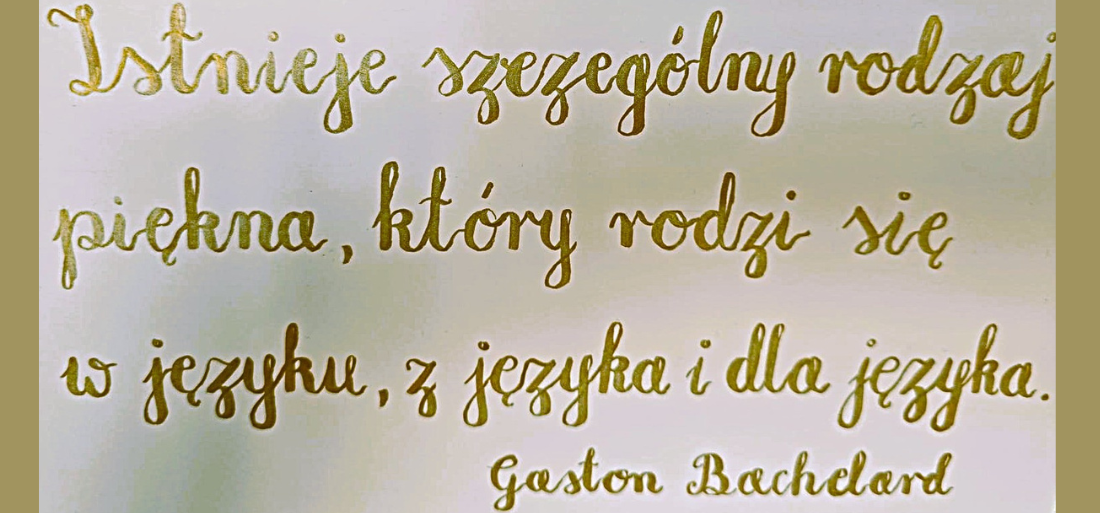 Istnieje szczególny rodzaj
piękna, który rodzi się
w języku, z języka i dla języka.
Gaston Bachelard